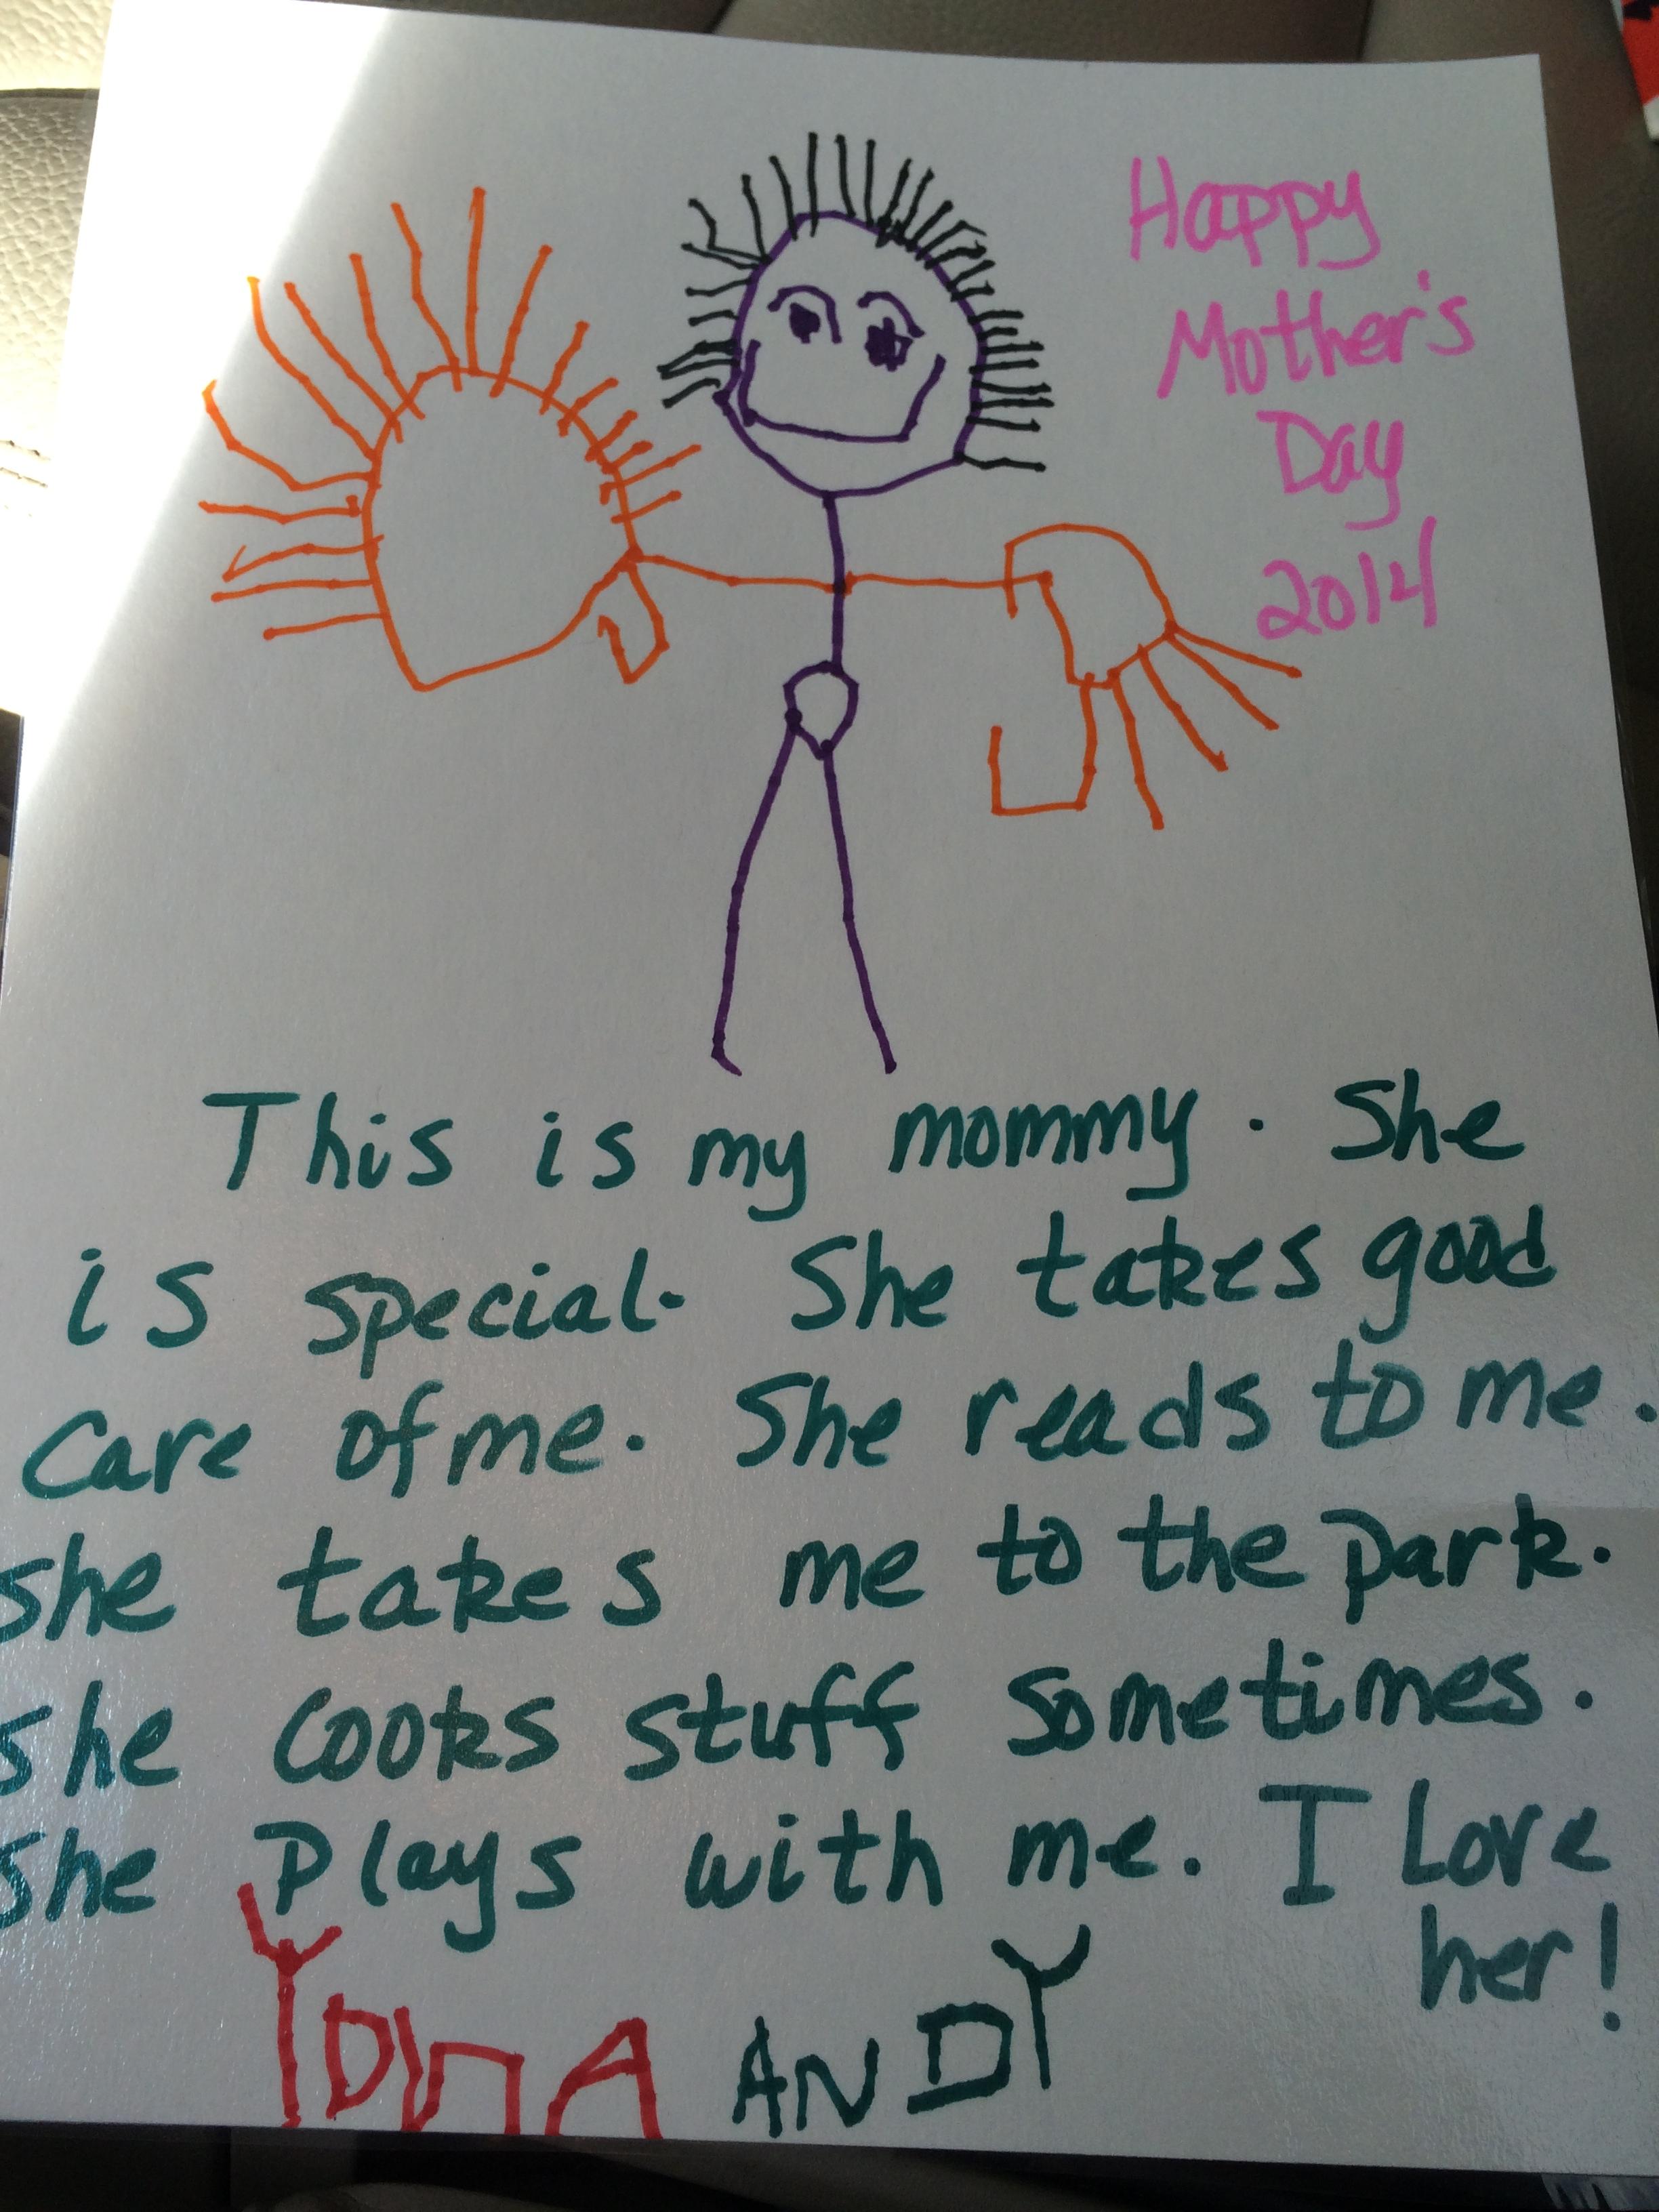 Happy
Mother's
Day
2014
This is my mommy. She
is special. She takes good
care of me. She reads to me.
she takes me to the park.
she cooks stuff sometimes.
she plays with me. I Love
her!
ANDY